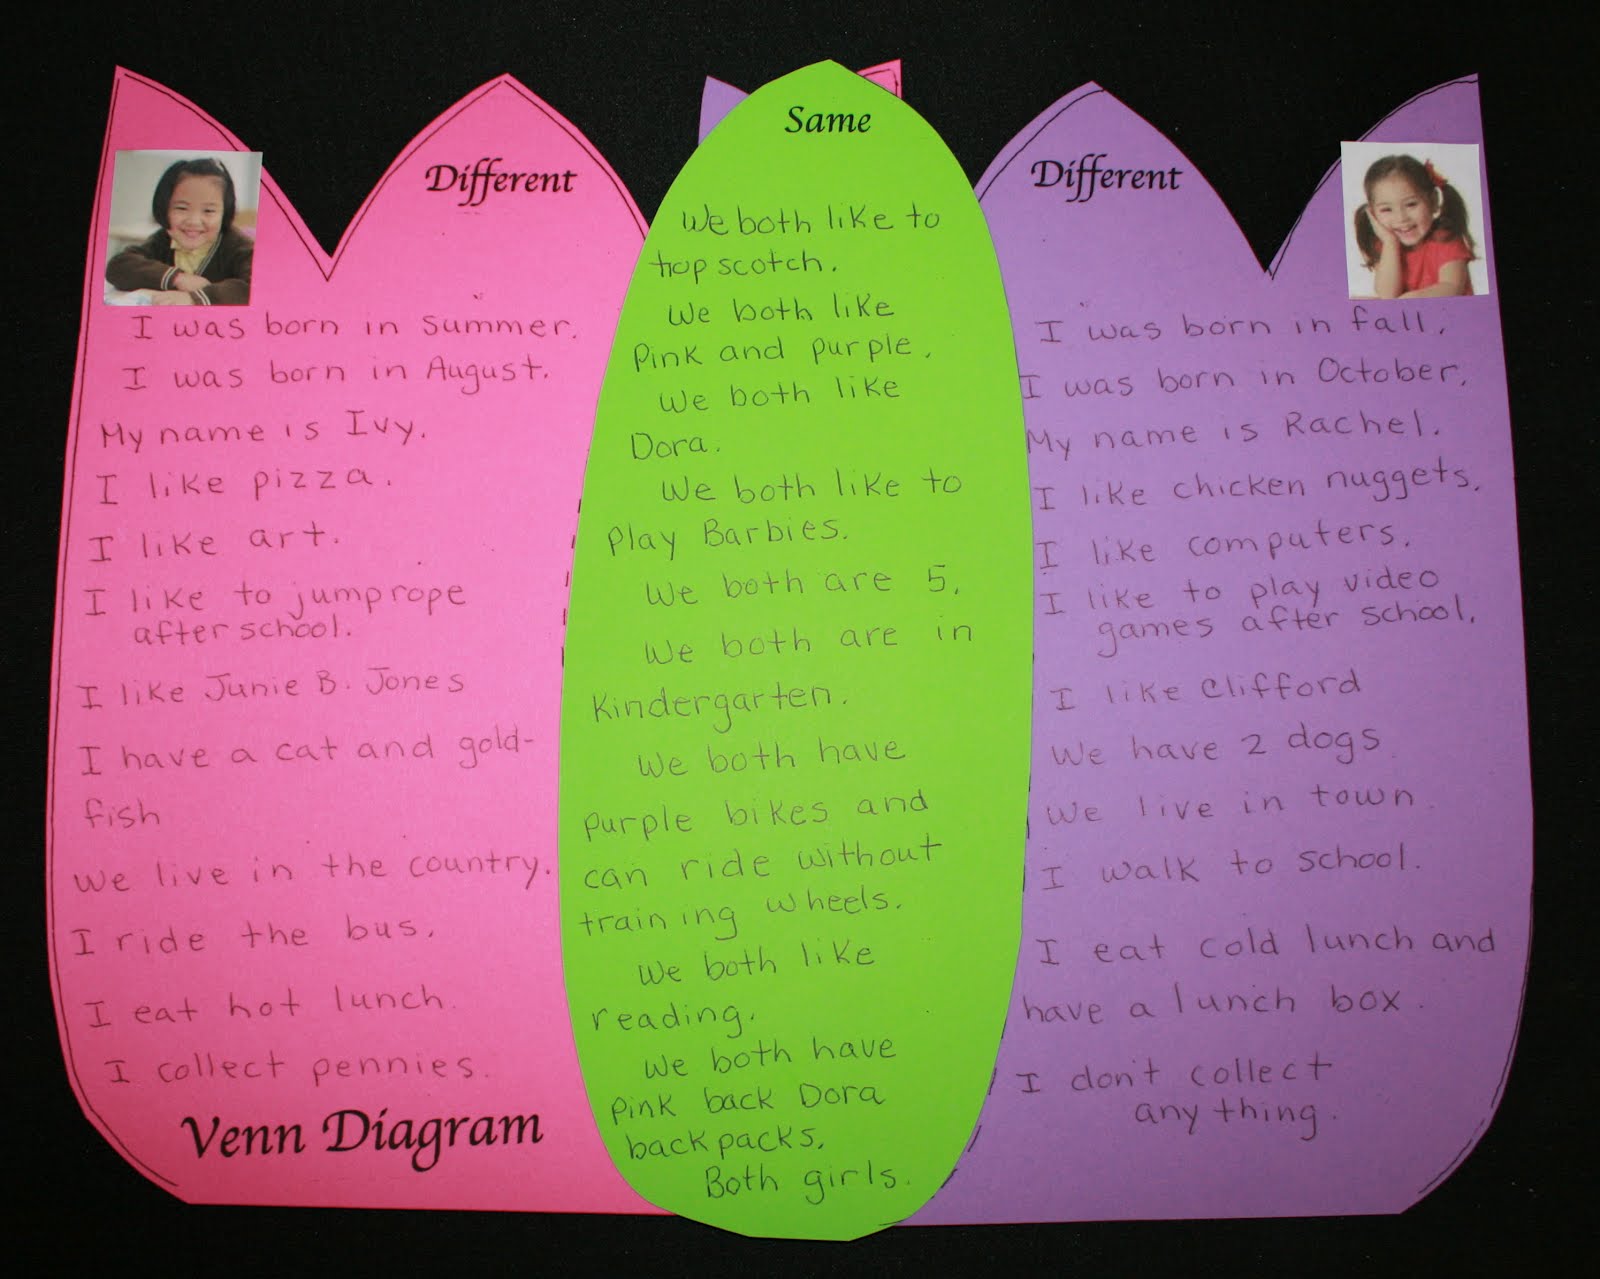 Different
I was born in summer.
I was born in August.
My name is Ivy.
I like pizza.
I like art.
I like to jumprope
after school.
I like Junie B. Jones
I have a cat and gold-
fish
We live in the country.
I ride the bus.
I eat hot lunch.
I collect pennies.
Venn Diagram
Same
We both like to
hop scotch.
We both like
Pink and purple.
We both like
Dora.
We both like to
Play Barbies.
We both are 5.
We both are in
Kindergarten.
We both have
purple bikes and
can ride without
training wheels.
We both like
reading.
We both have
pink back Dora
back packs.
Both girls.
Different
I was born in fall.
I was born in October.
My name is Rachel.
I like chicken nuggets.
I like computers.
I like to play video
games after school.
I like Clifford
We have 2 dogs
We live in town.
I walk to school.
I eat cold lunch and
have a lunch box.
I don't collect
any thing.